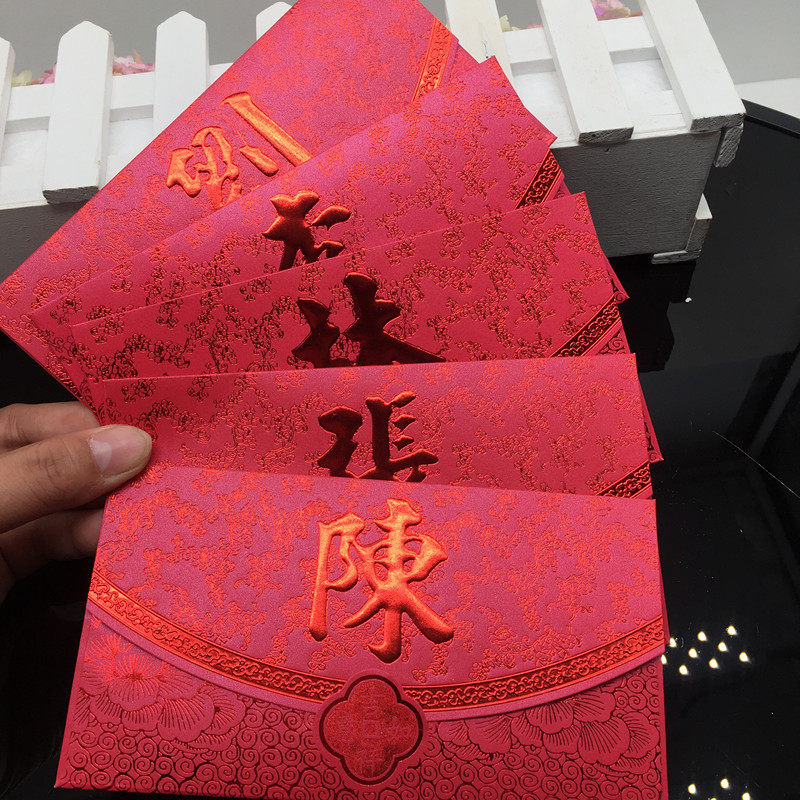 劉
林
張
陳